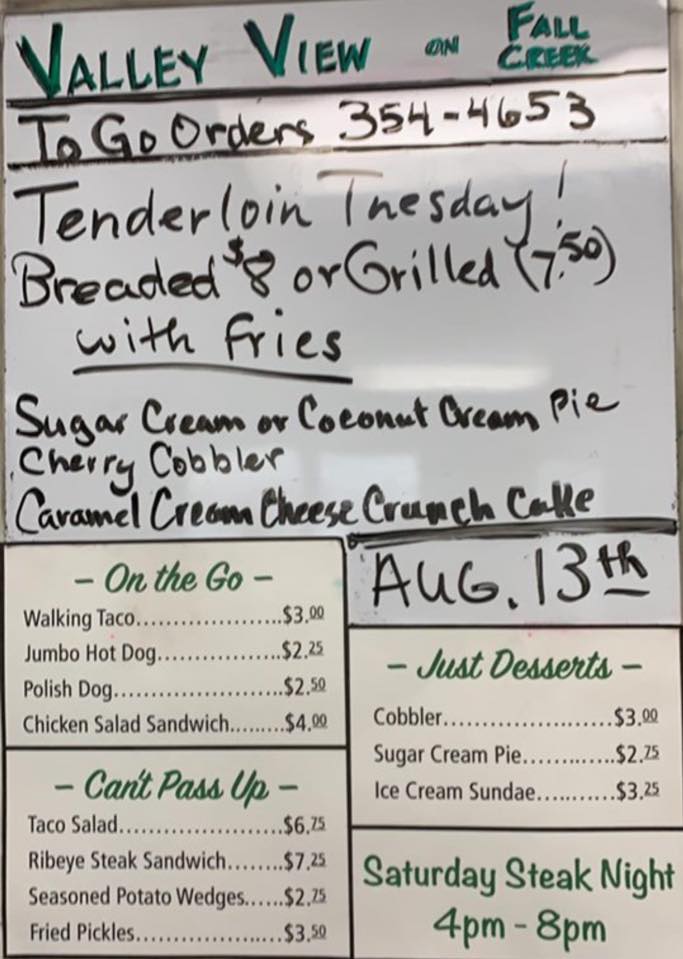 VALLEY VIEW ON FALL CREEK
To Go Orders 354-4653
Tenderloin Tuesday!
Breaded $8 or Grilled (7.50)
with fries
Sugar Cream or Coconut Cream Pie
Cherry Cobbler
Caramel Cream Cheese Crunch Cake
AUG. 13th
- On the Go -
Walking Taco.....................$3.00
Jumbo Hot Dog.................$2.25
Polish Dog.......................$2.50
Chicken Salad Sandwich.........$4.00
- Can't Pass Up -
Taco Salad......................$6.75
Ribeye Steak Sandwich........$7.25
Seasoned Potato Wedges......$2.75
Fried Pickles.....................$3.50
- Just Desserts -
Cobbler.......................$3.00
Sugar Cream Pie.............$2.75
Ice Cream Sundae...........$3.25
Saturday Steak Night
4pm - 8pm